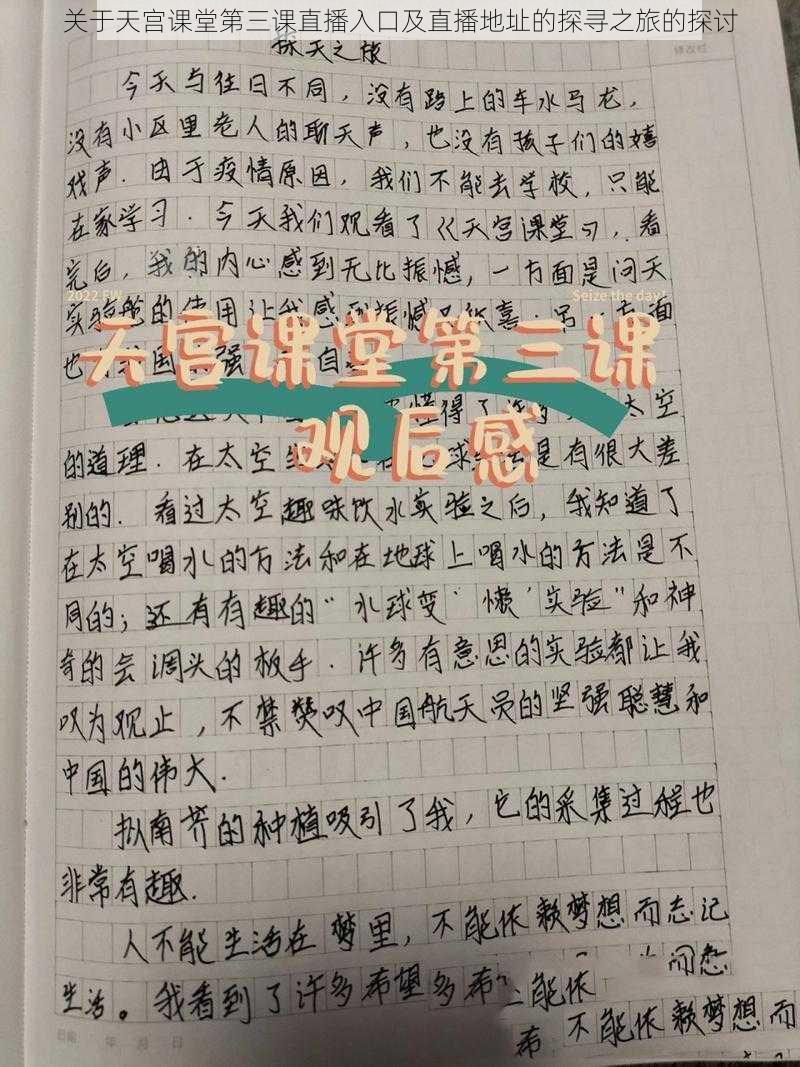 关于天宫课堂第三课直播入口及直播地址的探寻之旅的探讨
探天之旅
修改栏
今天与往日不同，没有路上的车水马龙，
没有小区里老人的聊天声，也没有孩子们的嬉
戏声．由于疫情原因，我们不能去学校，只能
在家学习．今天我们观看了《天宫课堂》，看
完后，我的内心感到无比振憾，一方面是问天
2022 FW
Seize the day!
实验舱的使用让我感到振憾
面
也
国
强
自
天宫课堂第三课
观后感
懂得了
太空
的道理．在太空
是有很大差
别的．看过太空趣味饮水实验之后，我知道了
在太空喝水的方法和在地球上喝水的方法是不
同的；还有有趣的“水球变‘懒’实验”和神
奇的会调头的板手．许多有意思的实验都让我
叹为观止，不禁赞叹中国航天员的坚强聪慧和
中国的伟大．
拟南芥的种植吸引了我，它的采集过程也
非常有趣．
人不能生活在梦里，不能依赖梦想而忘记
生活。我看到了许多希望多希
能依
希 不能依赖梦想而
年 月 日